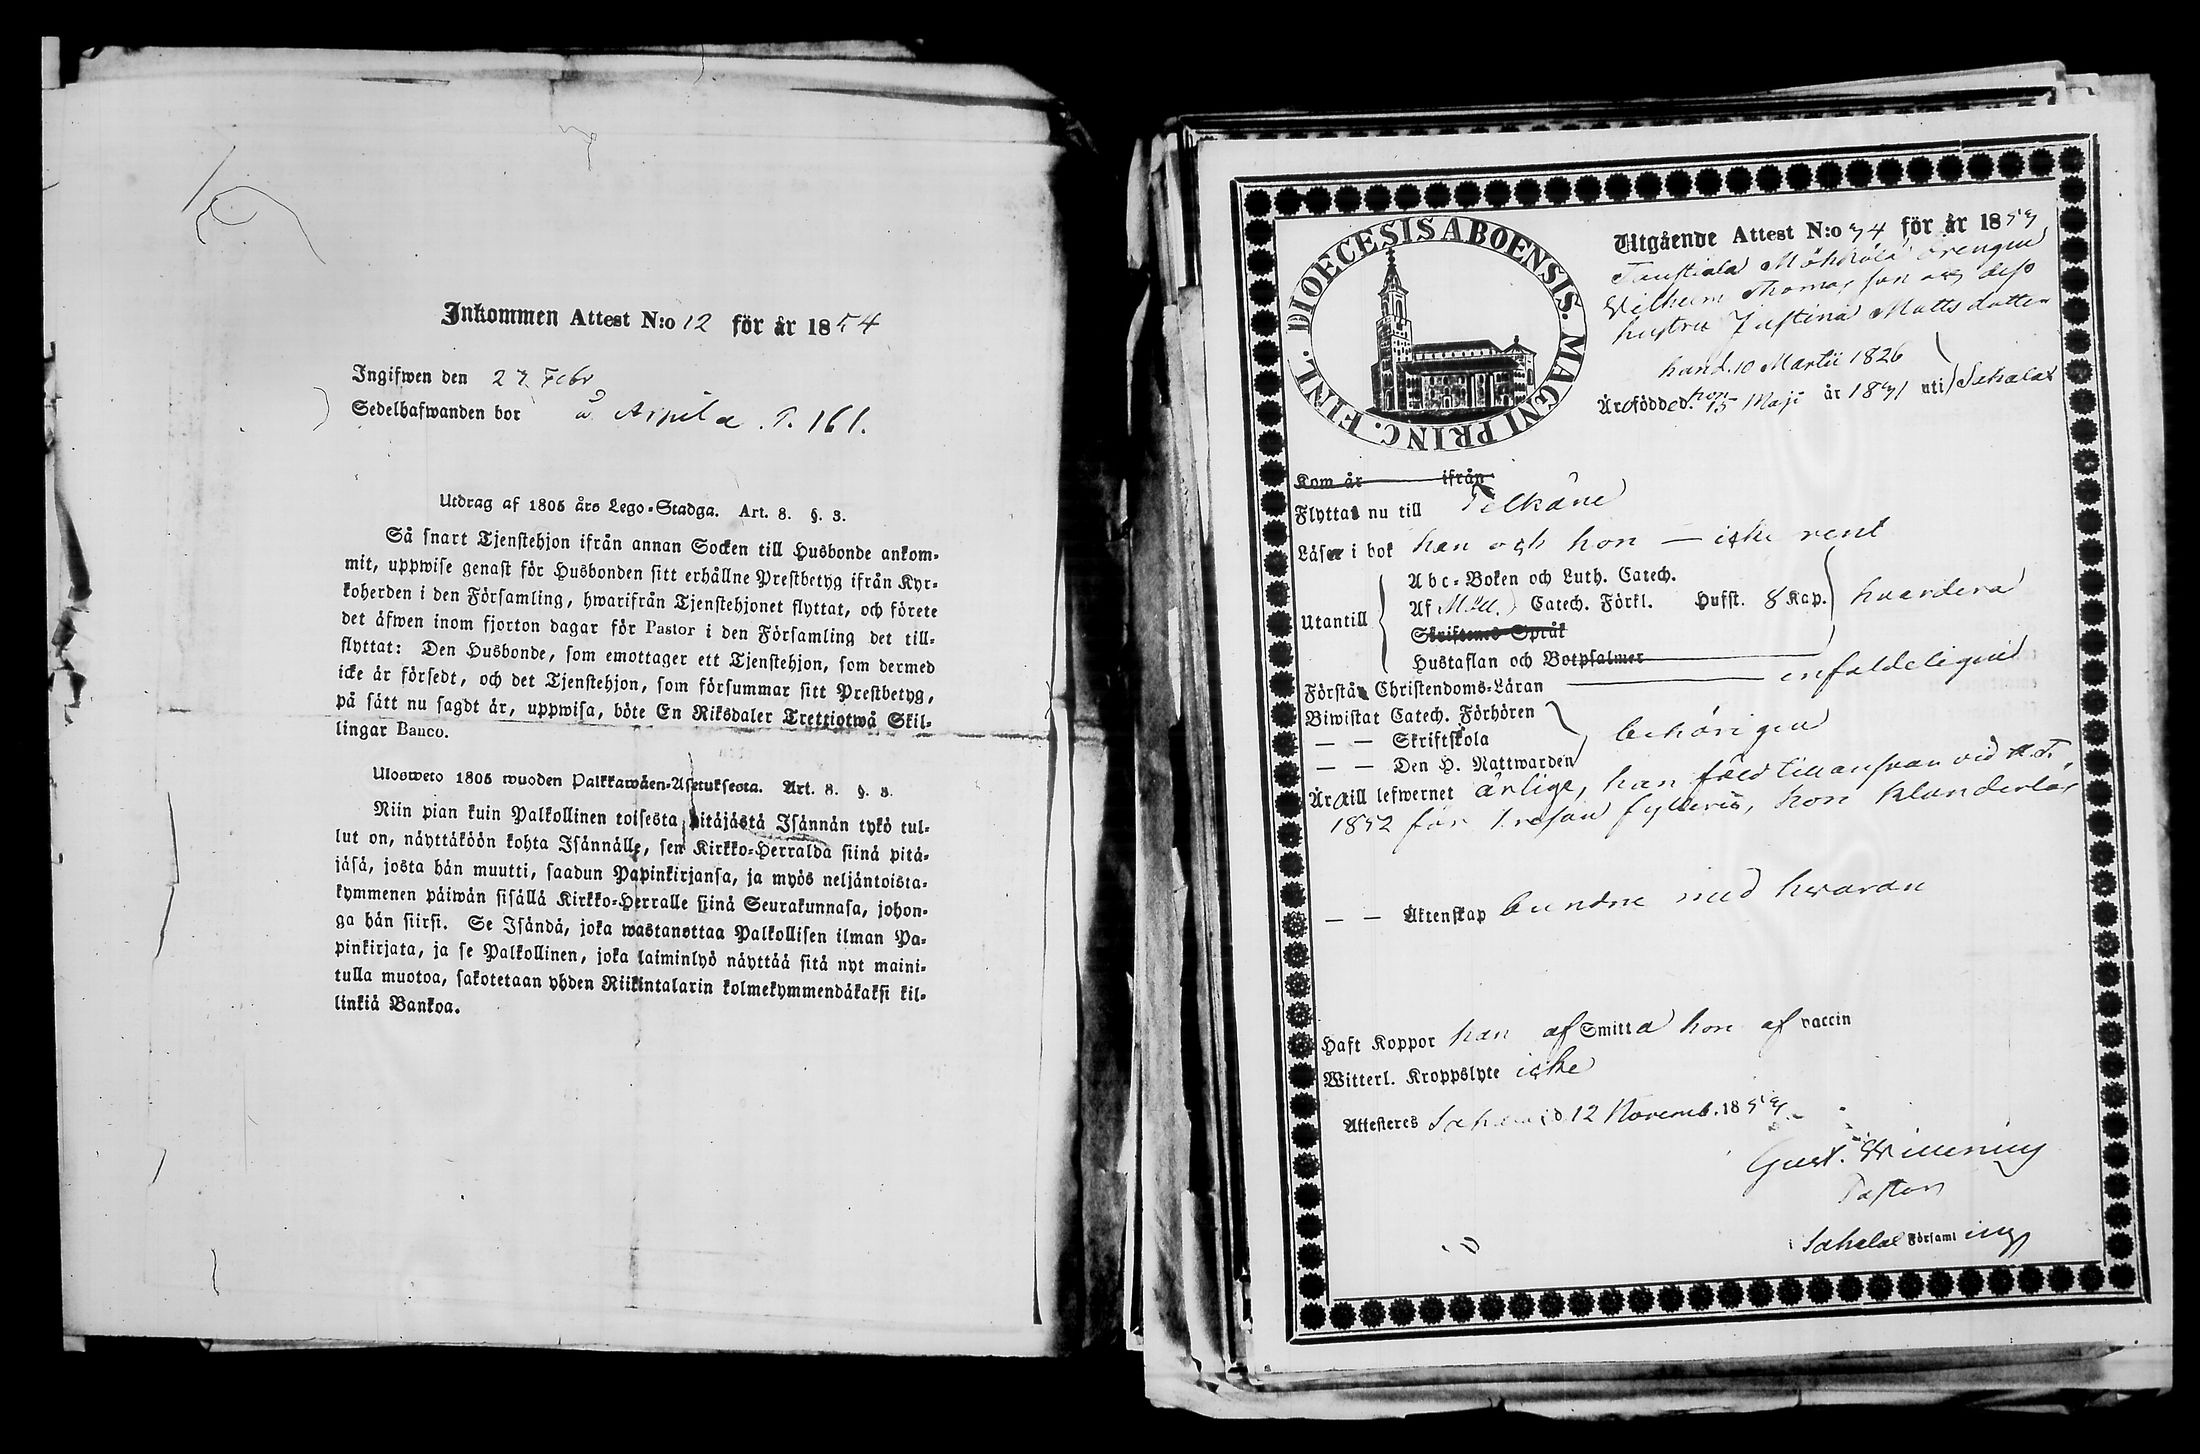 Inkommen Attest N:o 12 för år 1854
Ingifwen den 27 Febr
Sedelhafwanden bor å Arpila . P. 161.
Utdrag af 1805 års Lego-Stadga. Art. 8. §. 3.
Så snart Tjenstehjon ifrån annan Socken till Husbonde ankom-
mit, uppwise genast för Husbonden sitt erhållne Prestbetyg ifrån Kyr-
koherden i den Församling, hwarifrån Tjenstehjonet flyttat, och förete
det äfwen inom fjorton dagar för Pastor i den Församling det till-
flyttat: Den Husbonde, som emottager ett Tjenstehjon, som dermed
icke är försedt, och det Tjenstehjon, som försummar sitt Prestbetyg,
på sätt nu sagdt är, uppwisa, böte En Riksdaler Trettiotwå Skil-
lingar Banco.
Ulosweto 1805 wuoden Palkkawäen-Asetuksesta. Art. 8. §. 3.
Niin pian kuin Palkollinen toisesta pitäjästä Isännän tykö tul-
lut on, näyttäköön kohta Isännälle, sen Kirkko-Herralda siinä pitä-
jäsä, josta hän muutti, saadun Papinkirjansa, ja myös neljäntoista-
kymmenen päiwän sisällä Kirkko-Herralle siinä Seurakunnasa, johon-
ga hän siirsi. Se Isändä, joka wastanottaa Palkollisen ilman Pa-
pinkirjata, ja se Palkollinen, joka laiminlyö näyttää sitä nyt maini-
tulla muotoa, sakotetaan yhden Riikintalarin kolmekymmendäkaksi kil-
linkiä Bankoa.
DIOECESIS ABOENSIS. MAGNI PRINC. FINL.
Utgående Attest N:o 74 för år 1853
Drengen
Vilhelm Thomas son och dess
hustru Justina Matts dotter
han d. 10 Martii 1826
Äro födde d. hon 15 Maji år 1831 uti Sahalax
Kom år ifrån
Flytta nu till Pelkäne
Läser i bok han och hon — icke rent
Utantill
Abc-Boken och Luth. Catech.
Af Möll. Catech. Förkl. Hufst. 8 Kap. hvardera
Skriftenes Språk
Hustaflan och Botpsalmer
Förstå Christendoms-Läran enfaldeligen
Biwistat Catech. Förhören
— — Skriftskola behörigen
— — Den H. Nattwarden
Äro till lefwernet ärlige, han fäld till answar vid H. T.
1852 för 1 resan fylleri, hon klanderlös
— — Äktenskap bundne med hvaran
Haft Koppor han af Smitta hon af vaccin
Witterl. Kroppslyte icke
Attesteres Sahalax d. 12 Novemb. 1853.
Gust. Winning
Pastor
i Sahalax Församling